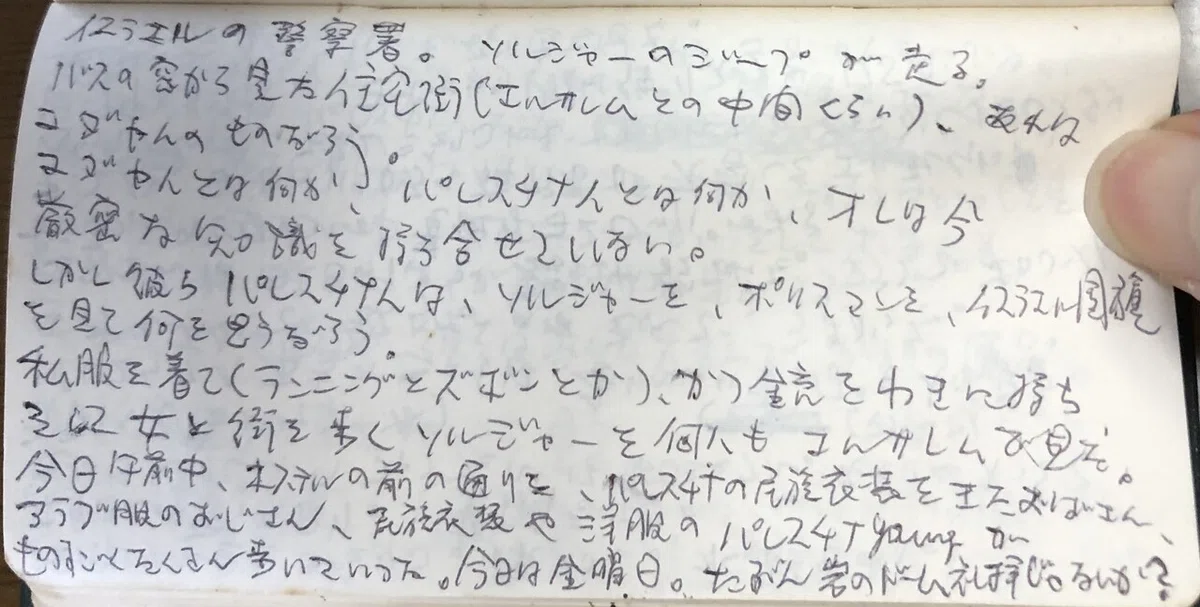 イスラエルの警察署。ソルジャーのジープが走る。
バスの窓から見た住宅街(エルサレムとの中間くらい)、あれは
ユダヤ人のものだろう。
ユダヤ人とは何か、パレスチナ人とは何か、オレは今
厳密な知識を持ち合せていない。
しかし彼らパレスチナ人は、ソルジャーを、ポリスマンを、イスラエル国旗
を見て何を思うだろう。
私服を着て(ランニングとズボンとか)、かつ金銃をわきに持ち
女と街を歩くソルジャーを何人もエルサレムで見た。
今日午前中、ホステルの前の通りを、パレスチナの民族衣装をきたおばさん、
アラブ服のおじさん、民族衣装や洋服のパレスチナyoungが
ものすごくたくさん歩いていった。今日は金曜日。たぶん岩のドーム礼拝じゃないか?